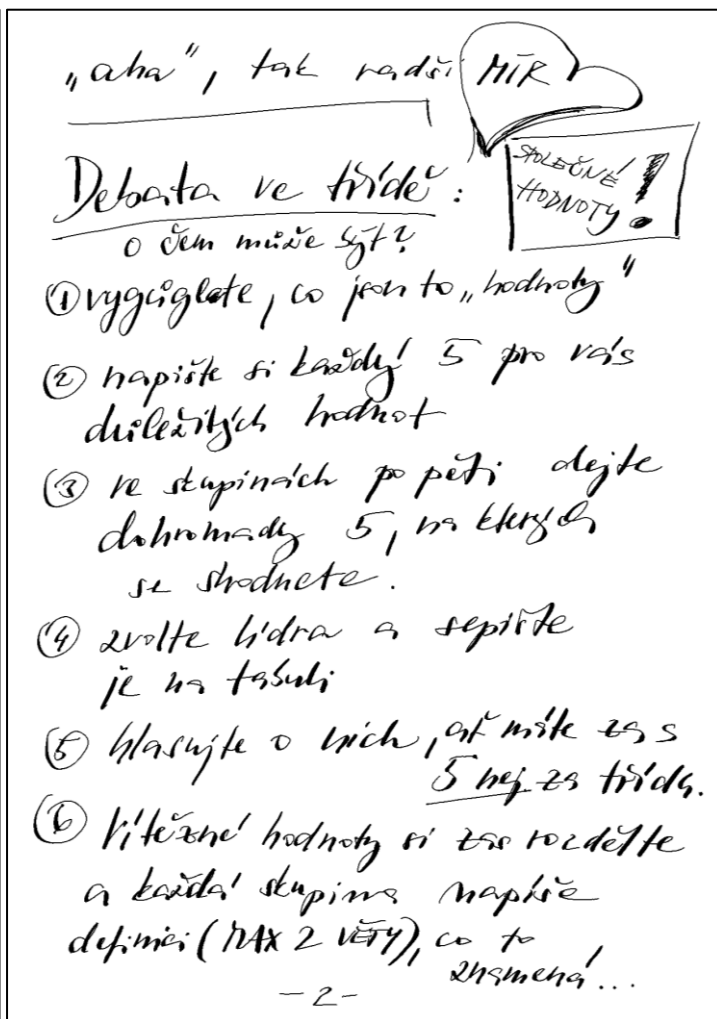 „aha", tak radši MÍR
SPOLEČNÉ !
HODNOTY
Debata ve třídě:
o čem může být?
① vygůglete, co jsou to „hodnoty"
② napište si každý 5 pro vás
důležitých hodnot
③ ve skupinách po pěti dejte
dohromady 5, na kterých
se shodnete.
④ zvolte lídra a sepište
je na tabuli
⑤ hlasujte o nich, ať máte zas
5 nej za třídu.
⑥ Vítězné hodnoty si zas rozdělte
a každá skupina napíše
definici (MAX 2 VĚTY), co to
znamená...
-2-